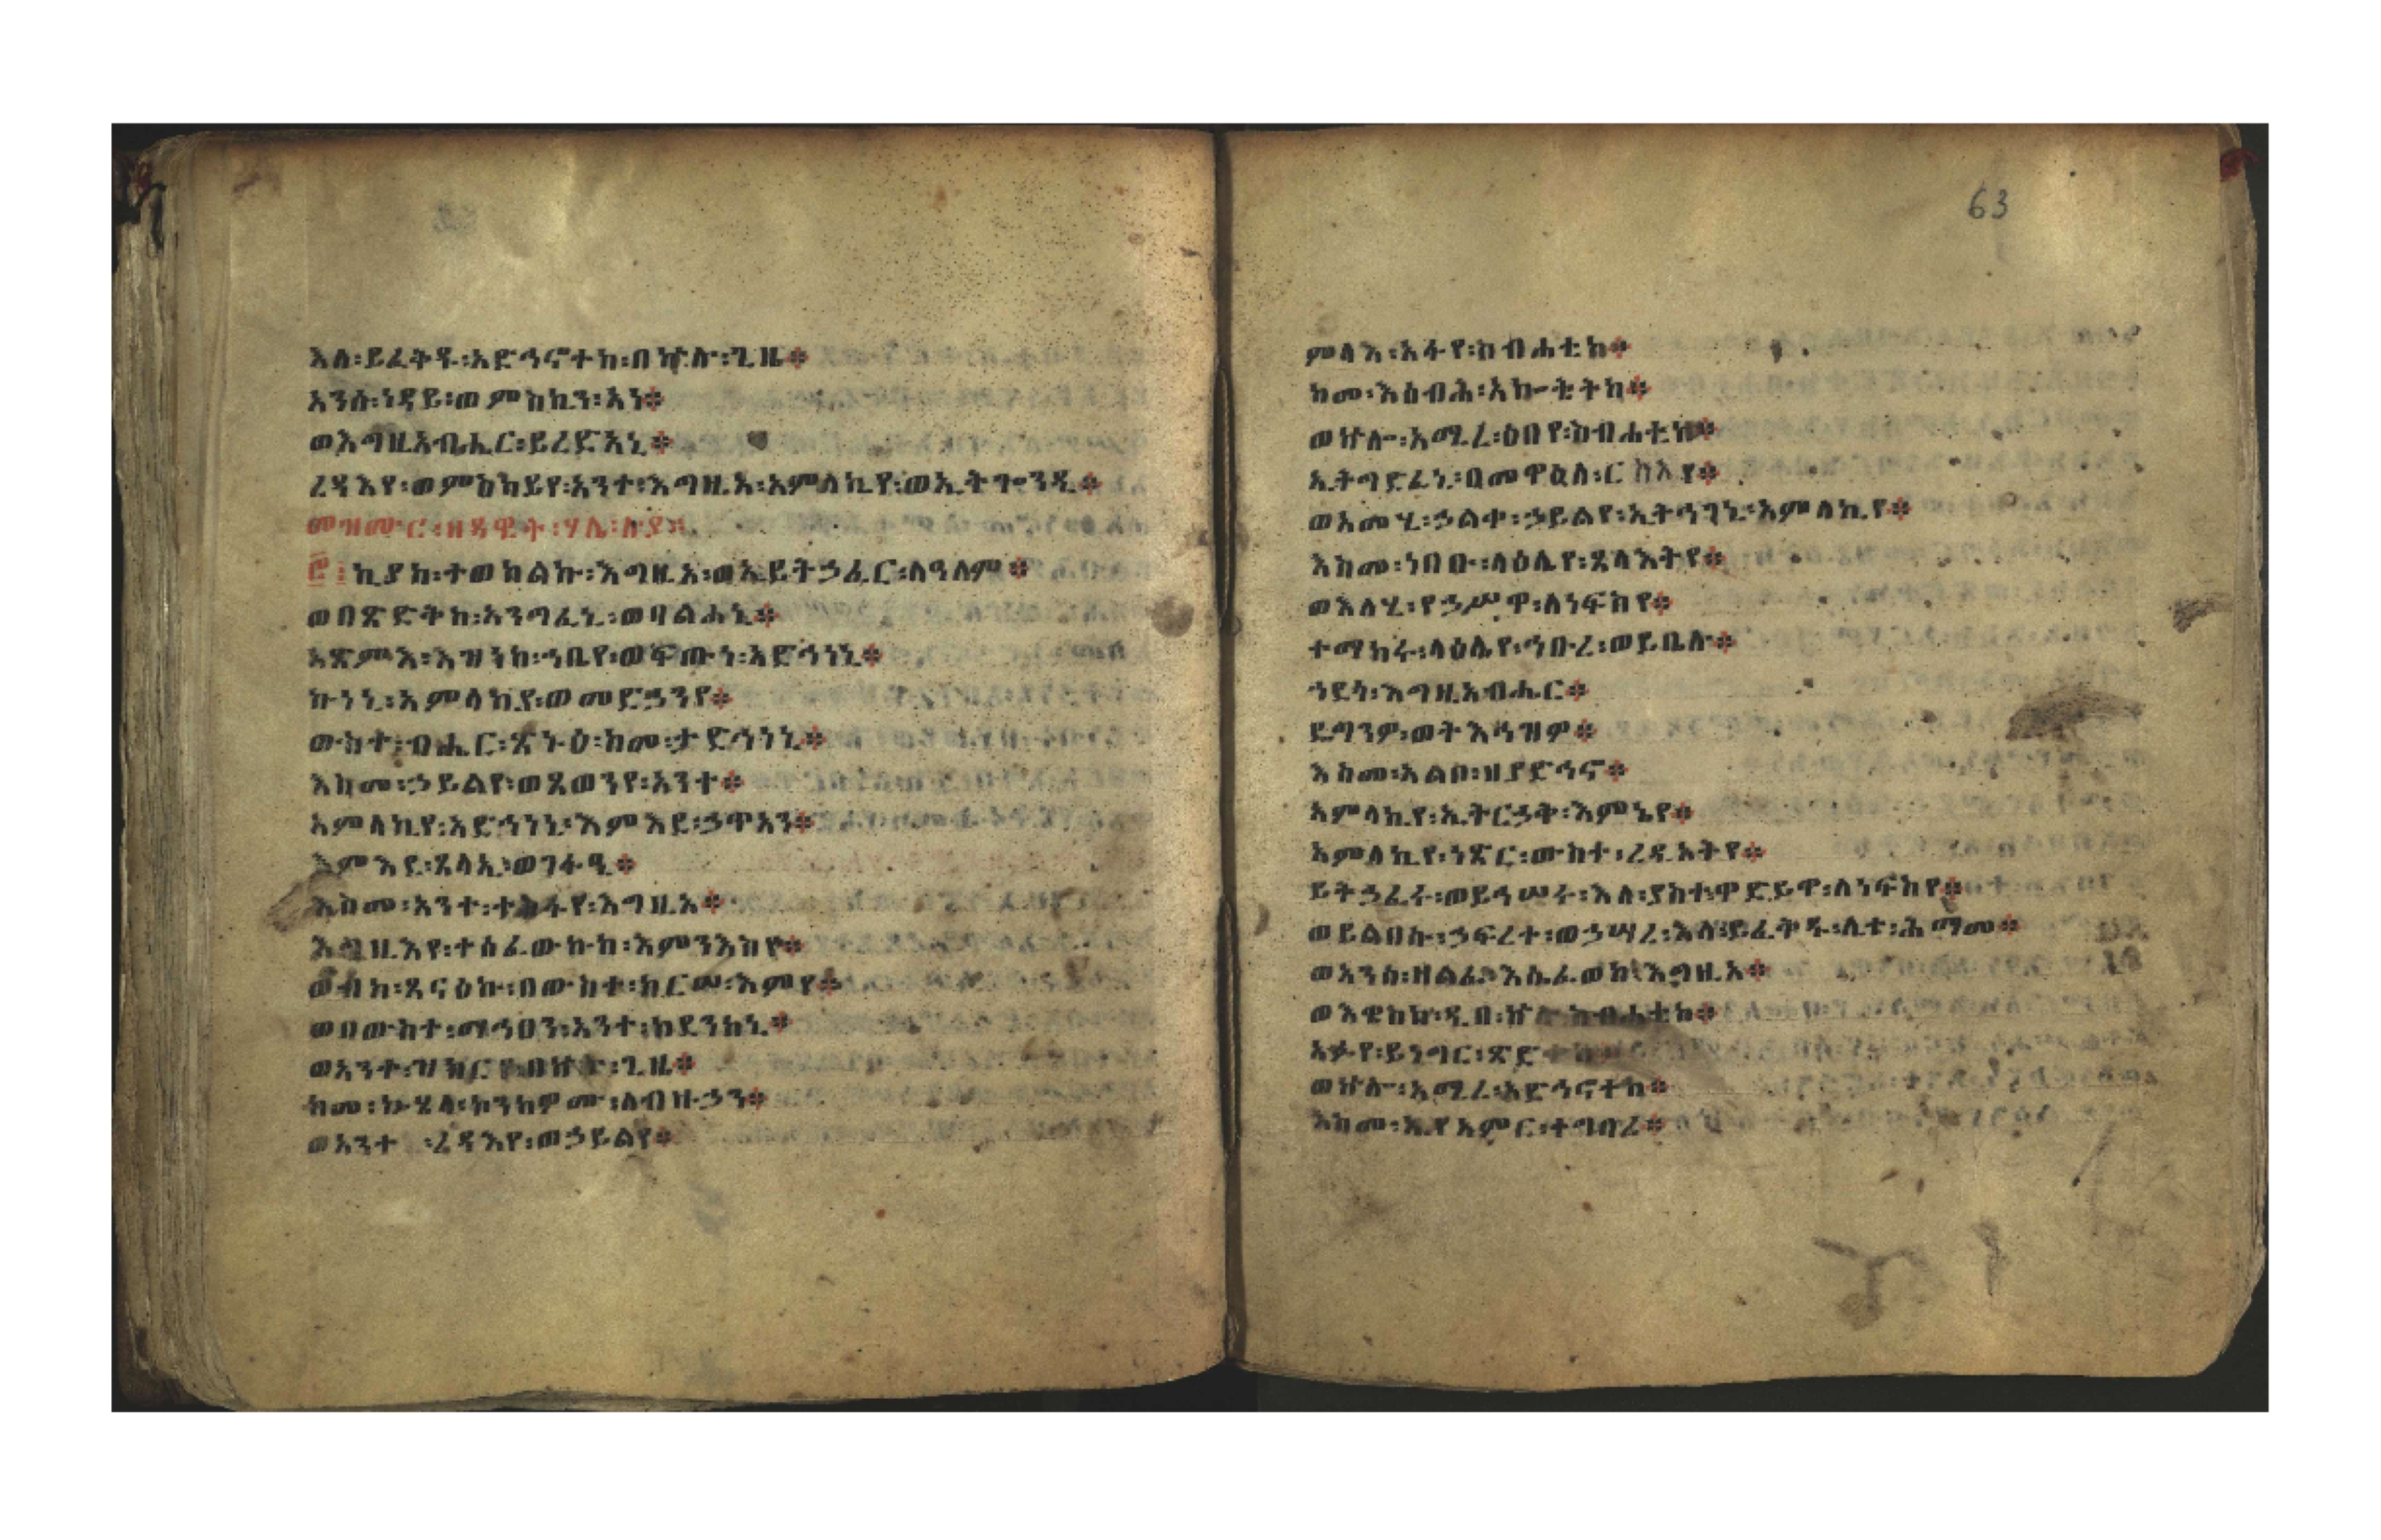 እለ፡ይፈትዉ፡አድኅኖተከ፡በኵሉ፡ጊዜ፨
አንሰ፡ነዳይ፡ወምስኪን፡አነ፨
ወእግዚአብሔር፡ይረድአኒ፨
ረዳእየ፡ወምስካይየ፡አንተ፡እግዚአ፡አምላኪየ፡ወኢትጐንዲ፨
መዝሙር፡ዘዳዊት፡
፸፡ኪያከ፡ተወከልኩ፡እግዚአ፡ወኢይትኃፈር፡ለዓለም፨
ወበጽድቅከ፡አንግፈኒ፡ወባልሐኒ፨
አጽምእ፡እዝነከ፡ኀቤየ፡ወፍጡነ፡አድኅነኒ፨
ኩነኒ፡አምላኪየ፡ወመድኃንየ፨
ውስተ፡ብሔር፡ጽኑዕ፡ከመ፡ታድኅነኒ፨
እስመ፡ኃይልየ፡ወጸወንየ፡አንተ፨
አምላኪየ፡አድኅነኒ፡እምእደ፡ኃጥአን፨
እምእደ፡ጸላኢ፡ወገፋዒ፨
እስመ፡አንተ፡ተስፋየ፡እግዚአ፨
እግዚእየ፡ተሰፈውኩከ፡እምንእስየ፨
ወብከ፡ጸናዕኩ፡በውስተ፡ከርሠ፡እምየ፨
ወበውስተ፡ማኅፀን፡አንተ፡ከደንከኒ፨
ወአንተ፡ዝክርየ፡በኵሉ፡ጊዜ፨
ከመ፡ኩሄላ፡ኮንክዎሙ፡ለብዙኃን፨
ወአንተ፡ረዳእየ፡ወኃይልየ፨
63
ምላእ፡አፋየ፡ስብሐቲከ፨
ከመ፡እሰብሕ፡አኰቴትከ፨
ወኵሎ፡አሚረ፡ዕበየ፡ስብሐቲከ፨
ኢትግድፈኒ፡በመዋዕለ፡ርስእየ፨
ወአመሂ፡ኃልቀ፡ኃይልየ፡ኢትኅድገኒ፡አምላኪየ፨
እስመ፡ነበቡ፡ላዕሌየ፡ጸላእትየ፨
ወእለሂ፡የኃሥዋ፡ለነፍስየ፨
ተማከሩ፡ላዕሌየ፡ኅቡረ፡ወይቤሉ፨
ኀደጎ፡እግዚአብሔር፨
ዴግንዎ፡ወትእኅዝዎ፨
እስመ፡አልቦ፡ዘያድኅኖ፨
አምላኪየ፡ኢትርኃቅ፡እምኔየ፨
አምላኪየ፡ነጽር፡ውስተ፡ረዲኦትየ፨
ይትኃፈሩ፡ወይኅሠሩ፡እለ፡ያስተዋድይዋ፡ለነፍስየ፨
ወይልበሱ፡ኃፍረተ፡ወኃሣረ፡እለ፡ይፈትዉ፡ሊተ፡ሕማመ፨
ወአንሰ፡ዘልፈ፡እሴፈወከ፡እግዚአ፨
ወእዌስክ፡ዲበ፡ኵሉ፡ስብሐቲከ፨
አፉየ፡ይነግር፡ጽድቀከ
ወኵሎ፡አሚረ፡አድኅኖተከ፨
እስመ፡ኢየአምር፡ተግባረ፨